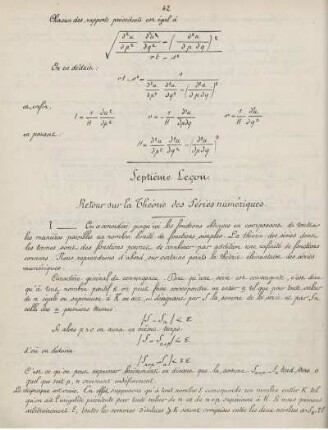 42
Chacun des rapports précédents est égal à
√( (∂²u/∂p² ∂²u/∂q² − (∂²u/∂p ∂q)²) / (rt − s²) )
On en déduit :
rt − s² = 1 / (∂²u/∂p² ∂²u/∂q² − (∂²u/∂p∂q)²)
et, enfin,
t = 1/H ∂²u/∂p² s = − 1/H ∂²u/∂p∂q r = 1/H ∂²u/∂q²
en posant :
H = ∂²u/∂p² ∂²u/∂q² − (∂²u/∂p∂q)²
Septième Leçon.
Retour sur la Théorie des Séries numériques.
I — On a considéré jusqu'ici les fonctions obtenues en composant de toutes
les manières possibles un nombre limité de fonctions simples. La théorie des séries dont
les termes sont des fonctions permet de combiner par addition une infinité de fonctions
connues. Nous reprendrons d'abord sur certains points la théorie élémentaire des séries
numériques.
Caractère général de convergence. Pour qu'une série soit convergente, c'est dire
qu'à tout nombre positif ε on peut faire correspondre un entier tel que pour toute valeur
de n égale ou supérieure à K on ait, en désignant par S la somme de la série et par Sₙ
celle des n premiers termes :
|S − Sₙ| < ε
Si alors p > 0 on aura en même temps
|S − Sₙ₊ₚ| < ε
d'où on déduira
|Sₙ₊ₚ − Sₙ| < 2ε
C'est ce qu'on peut exprimer brièvement en disant que la somme Sₙ₊ₚ − Sₙ tend vers 0
quel que soit p, n croissant indéfiniment.
La réciproque est vraie. En effet, supposons qu'à tout nombre ε corresponde un nombre entier K tel
qu'on ait l'inégalité précédente pour toute valeur de n et de n+p supérieure à K. Si nous prenons